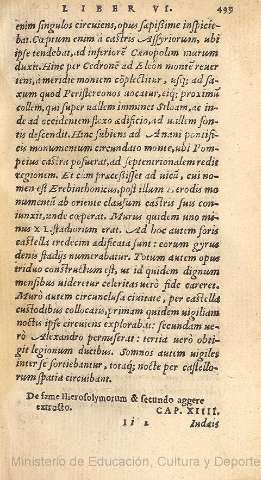 LIBER VI. 499
enim singulos circuiens, opus sapissime inspicie-
bat. Cœptum enim à castris Assyriorum, ubi
ipse tendebat, ad inferiorē Cænopolim murum
duxit. Hinc per Cedronē ad Eleôn montē reuer-
tens, à meridie montem cōplectitur, usq; ad sa-
xum quod Peristereonos uocatur, eiq; proximū
collem, qui super uallem imminet Siloam, ac in-
de ad occidentem flexo ædificio, ad uallem fon-
tis descendit. Hinc subiens ad Anani pontifi-
cis monumentum circundato monte, ubi Pom-
peius castra posuerat, ad septentrionalem redit
regionem. Et cùm præcessisset ad uicū, cui no-
men est Erebinthonicus, post illum Herodis mo-
numentū ab oriente clausum castris suis con-
iunxit, unde cœperat. Murus quidem uno mi-
nus XL stadiorum erat. Ad hoc autem foris
castella tredecim ædificata sunt: eorum gyrus
denis stadijs numerabatur. Totum autem opus
triduo constructum est, ut id quidem dignum
mensibus uideretur celeritas uerò fide careret.
Muro autem circunclusa ciuitate, per castella
custodibus collocatis, primam quidem uigiliam
noctis ipse circuiens explorabat: secundam ue-
rò Alexandro permiserat: tertia uerò obti-
git legionum ducibus. Somnos autem uigiles
inter se sortiebantur, totaq; nocte per castello-
rum spatia circuibant.
De fame Hierosolymorum & secundo aggere
extructo. CAP. XIIII.
Ii 2 Iudæis
Ministerio de Educación, Cultura y Deporte